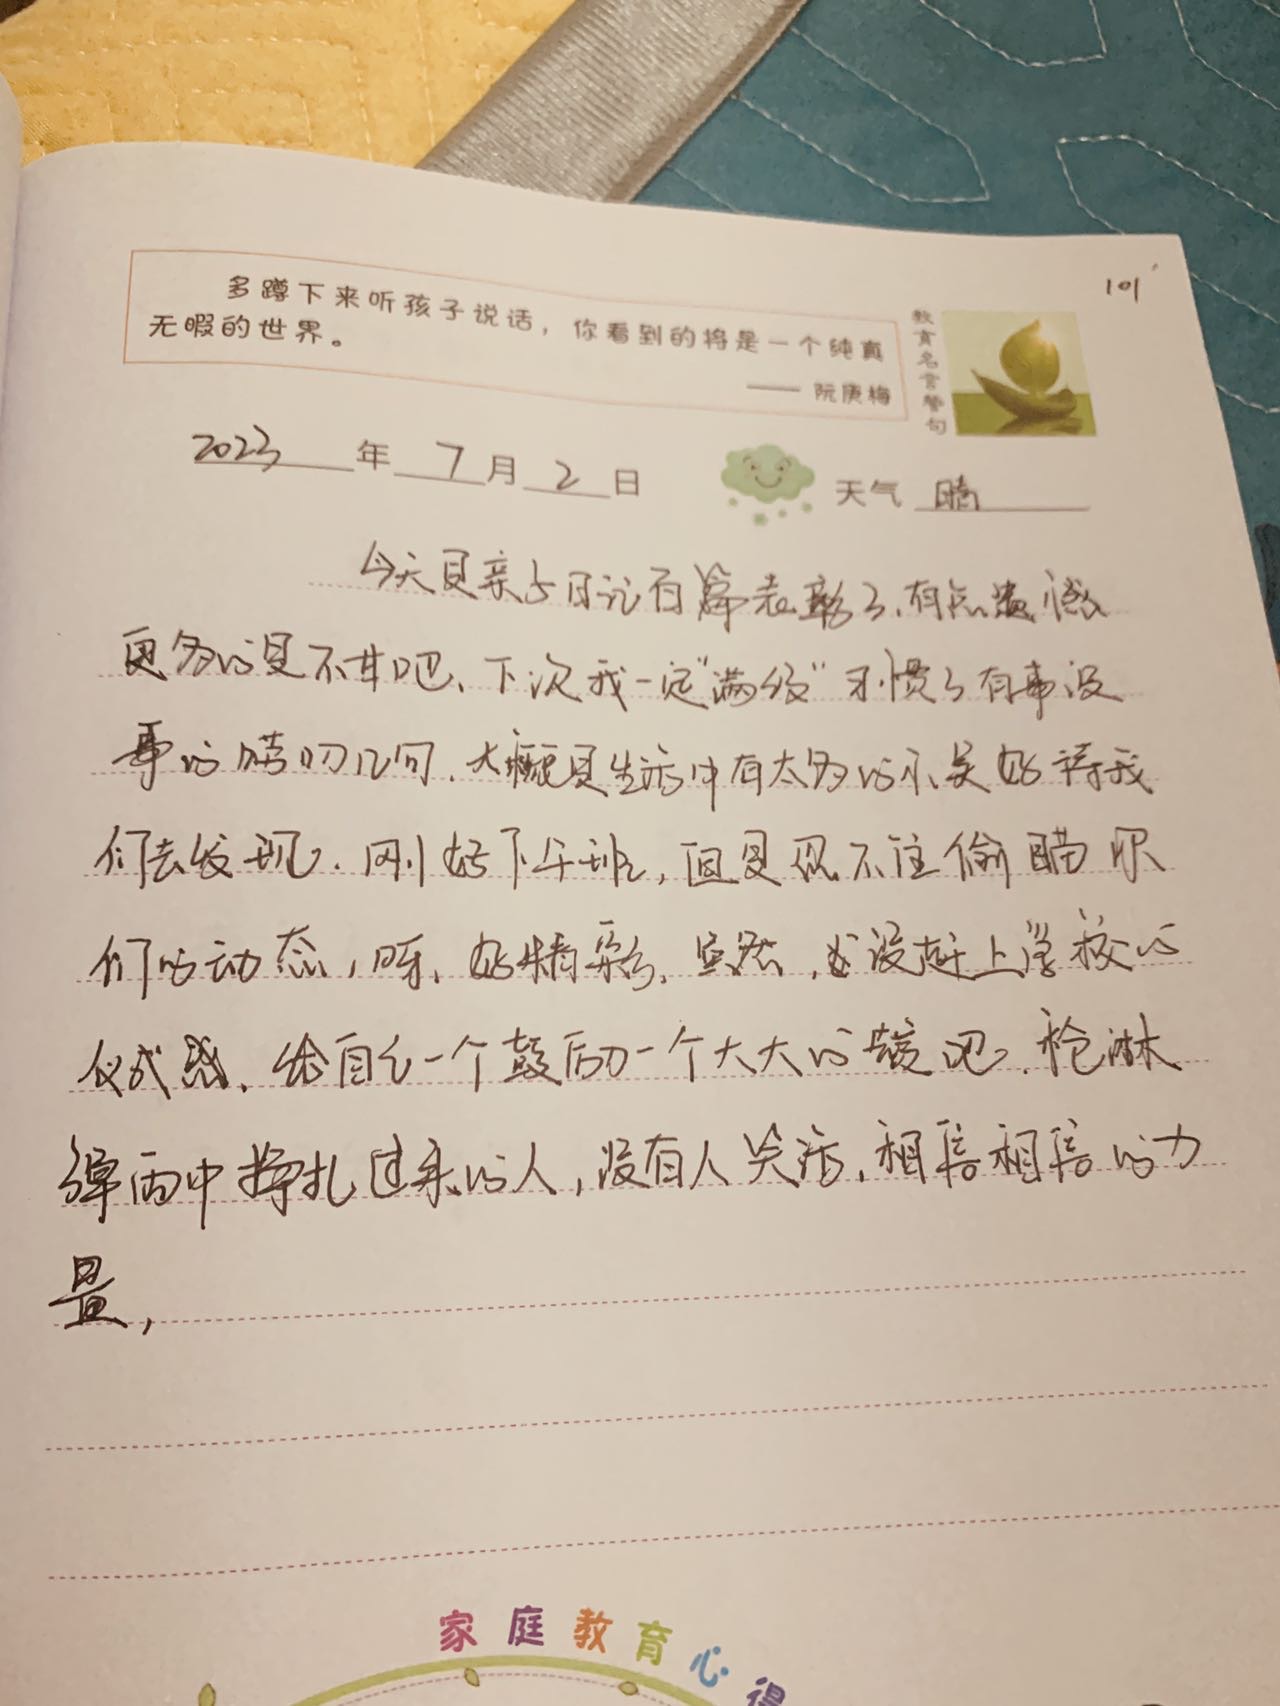 101
多蹲下来听孩子说话，你看到的将是一个纯真
无暇的世界。
—— 阮庚梅
教育名言警句
2023年7月2日
天气 晴
今天是亲子日记百篇表彰了、有点遗憾
更多的是不甘吧、下次我一定“满级”习惯了有事没
事的唠叨几句、大概是生活中有太多的小美好等我
们去发现、刚好下午班，但是忍不住偷瞄你
们的动态，呀、好精彩、虽然，没赶上学校的
仪式感、给自己一个鼓励一个大大的拥抱吧、枪淋
弹雨中挣扎过来的人，没有人笑话，相信相信的力
量，
家庭教育心得